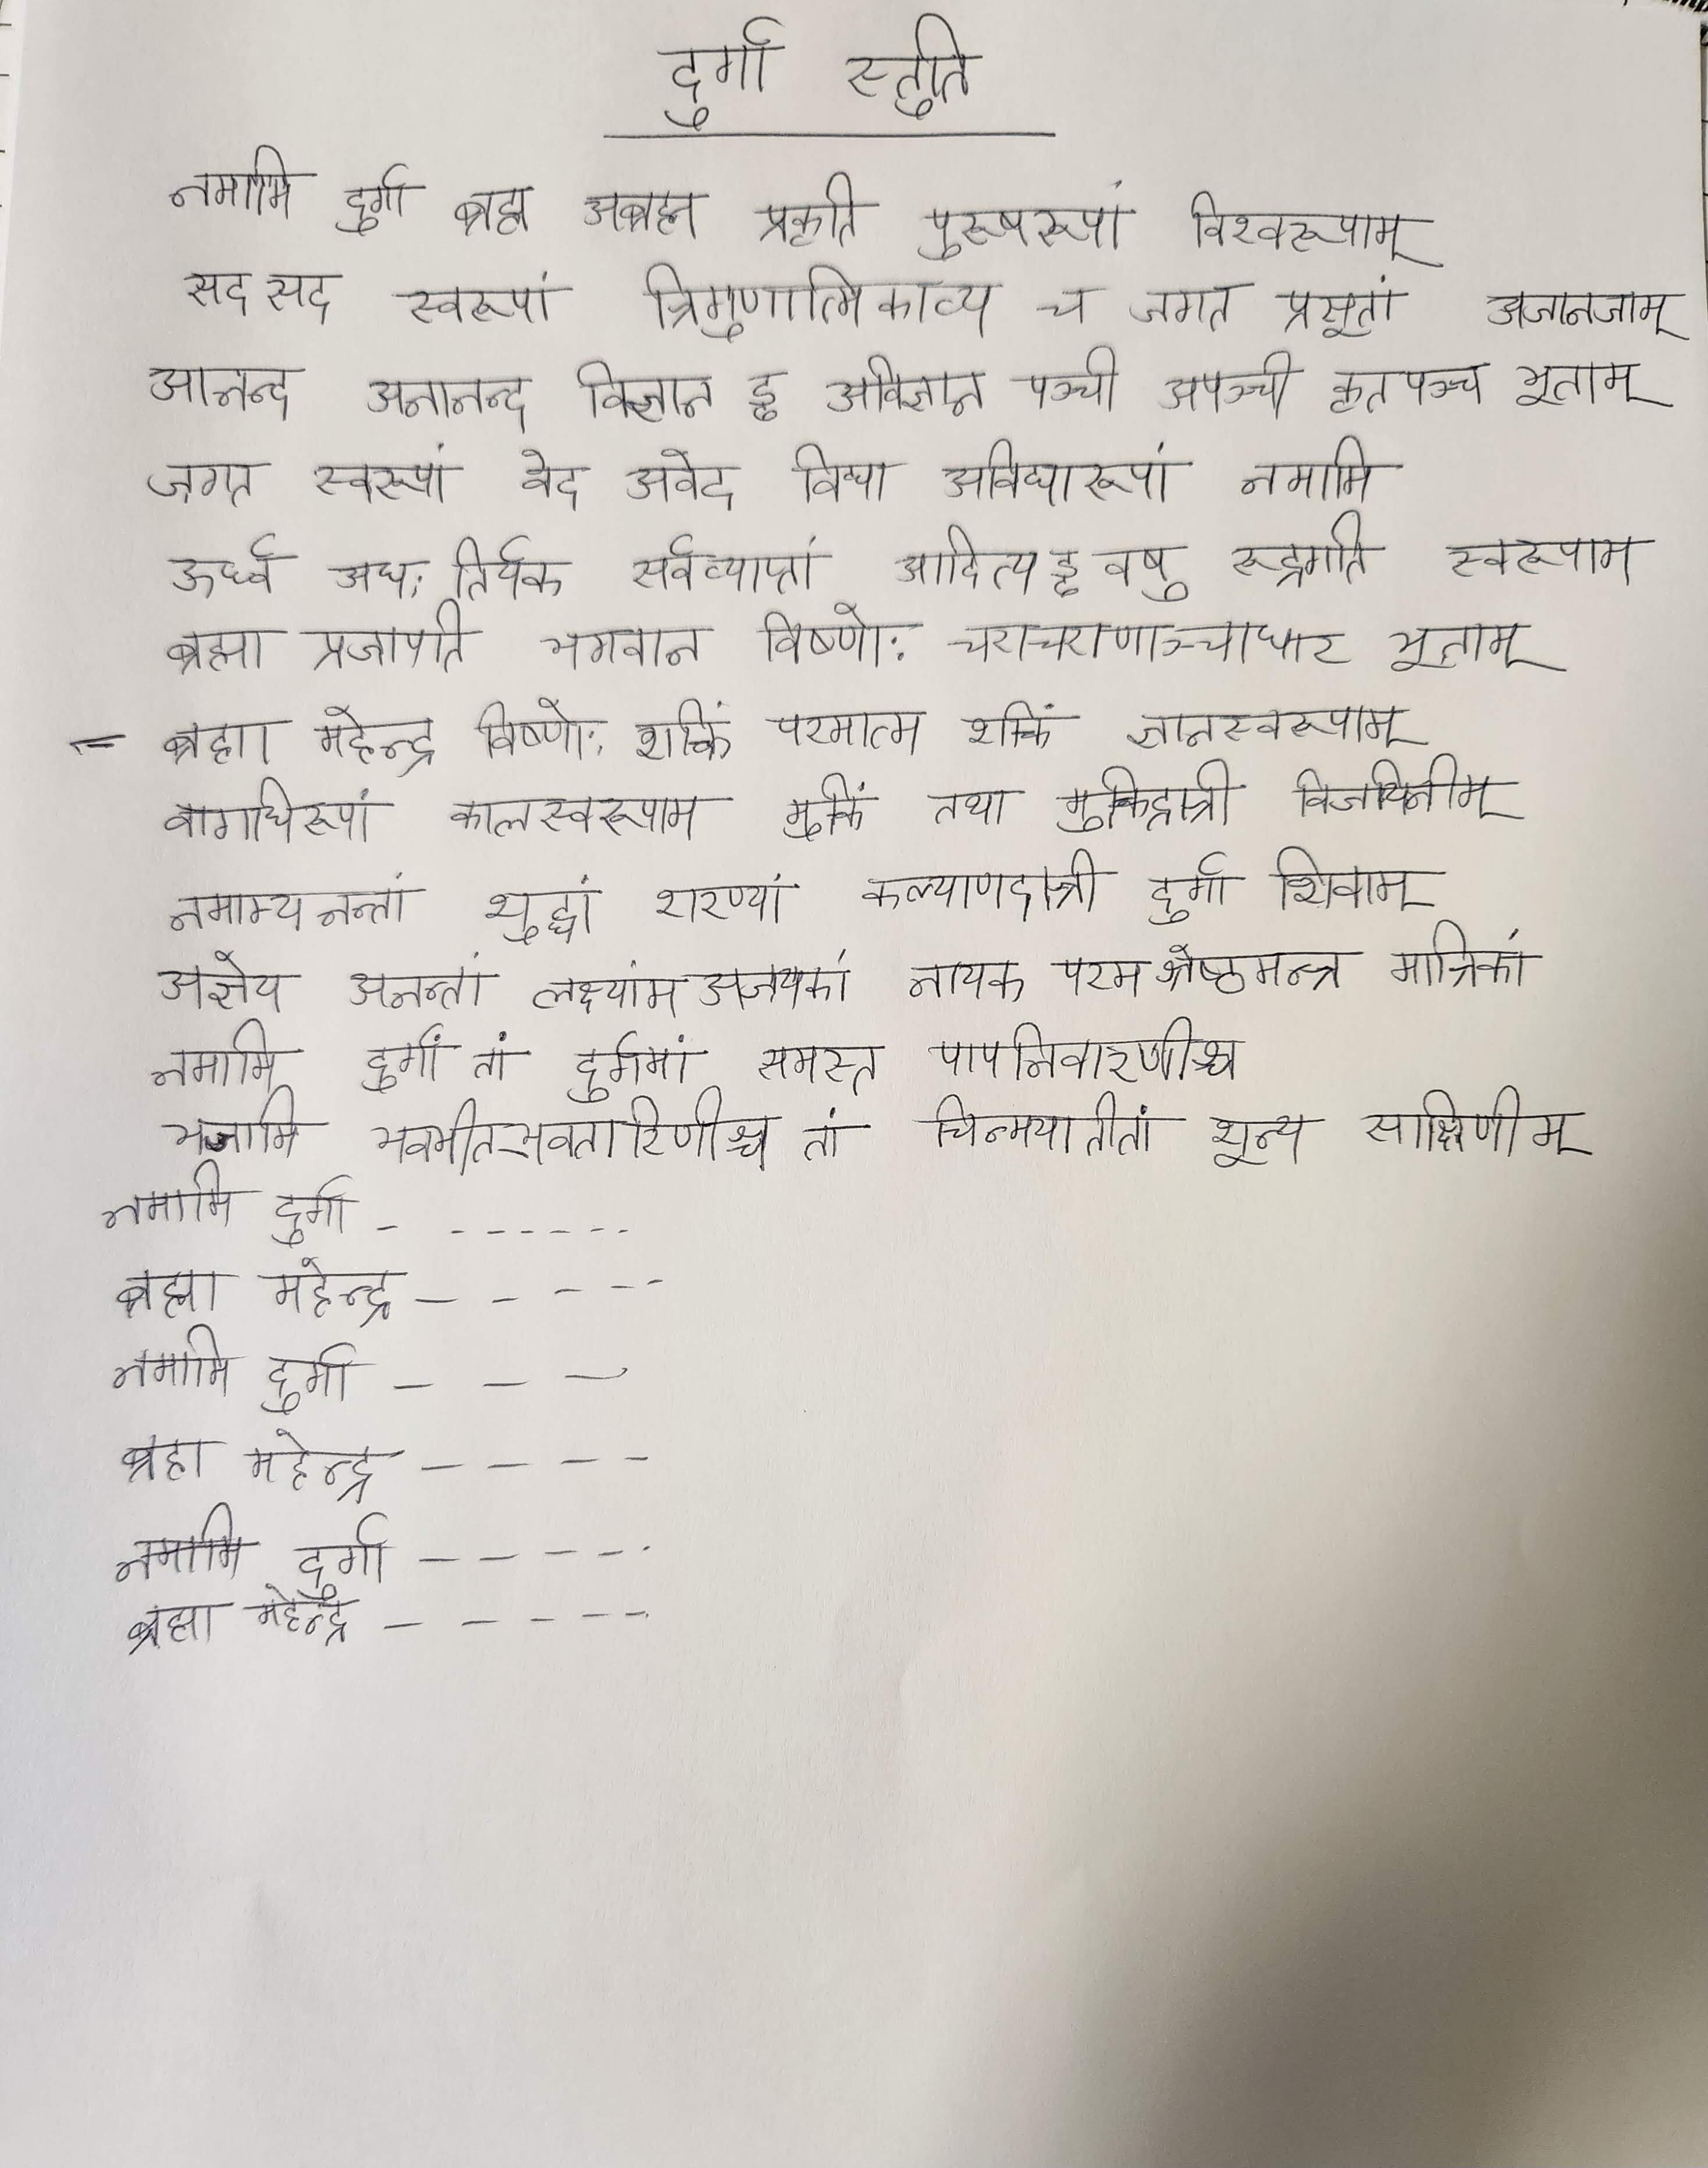 दुर्गा स्तुति
नमामि दुर्गा ब्रह्म अब्रह्म प्रकृति पुरूषरूपां विश्वरूपाम्
सद सद स्वरूपां त्रिगुणात्मिकाव्य च जगत प्रसूतां अजानजाम्
आनन्द अनानन्द विज्ञान ह्र अविज्ञान पञ्ची अपञ्ची कृत पञ्च भूताम्
जगत स्वरूपां वेद अवेद विद्या अविद्यारूपां नमामि
ऊर्ध्व अधः तिर्यक सर्वव्याप्तां आदित्य ह्र वषु रूद्रगति स्वरूपाम
ब्रह्मा प्रजापति भगवान विष्णोः चराचराणाञ्चाधार भूताम्
ब्रह्मा महेन्द्र विष्णोः शक्तिं परमात्म शक्तिं ज्ञानस्वरूपाम्
वागधिरूपां कालस्वरूपाम मुक्तिं तथा मुक्तिदात्री विजयिनीम्
नमाम्यनन्तां शुद्धां शरण्यां कल्याणदात्री दुर्गा शिवाम्
अज्ञेय अनन्तां लक्ष्यांम अजयकां नायक परम श्रेष्ठमन्त्र मात्रिकां
नमामि दुर्गां तां दुर्गमां समस्त पापनिवारणीश्च
भजामि भवभीतभवतारिणीश्च तां चिन्मयातीतां शून्य साक्षिणीम्
नमामि दुर्गा - - - - - - -
ब्रह्मा महेन्द्र - - - - -
नमामि दुर्गा - - -
ब्रह्मा महेन्द्र - - - -
नमामि दुर्गा - - - - -
ब्रह्मा महेन्द्र - - - - -